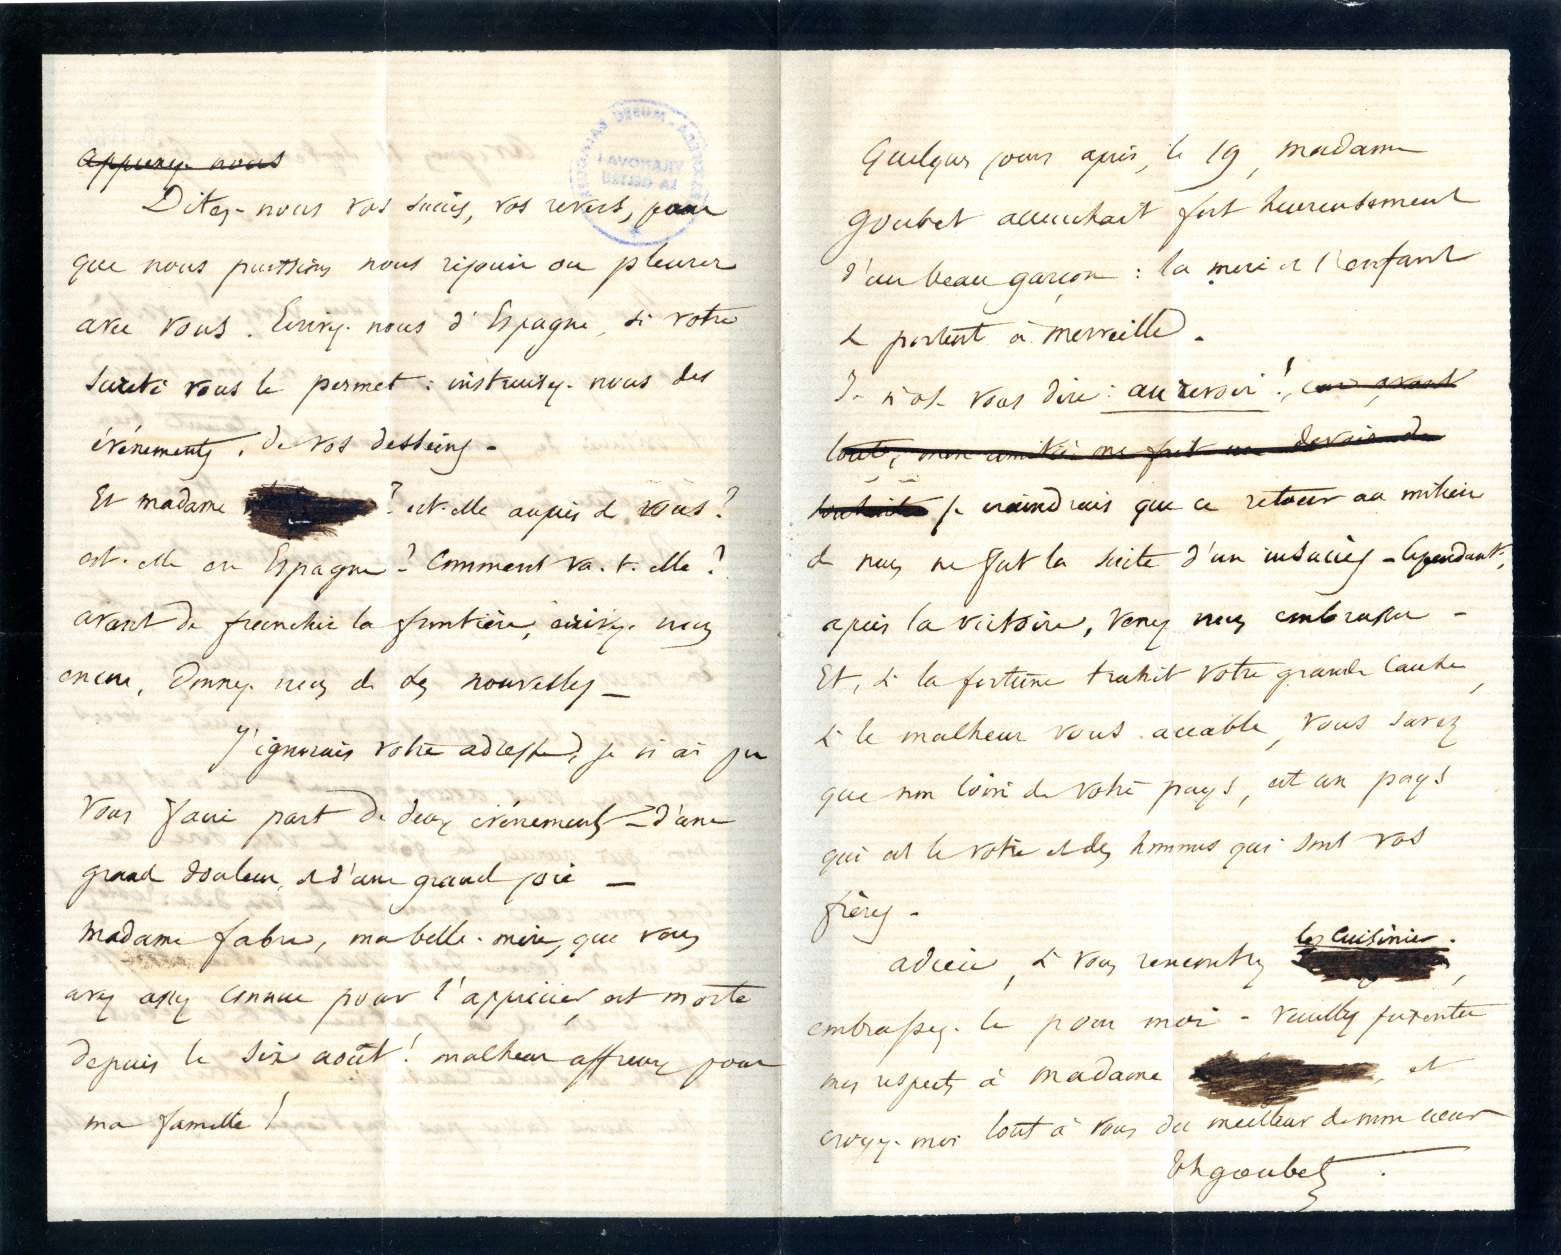 appuyez-nous
Ditez-nous vos succès, vos revers, pour
que nous puissions nous réjouir ou pleurer
avec vous. Ecrivez-nous d'Espagne, si votre
sureté vous le permet : instruisez-nous des
événements, de vos desseins -
Et madame ? est-elle auprès de vous ?
est-elle en Espagne ? Comment va-t-elle ?
avant de franchir la frontière, écrivez-nous
encore, donnez nous de ses nouvelles —
J'ignorais votre adresse, je n'ai pu
vous faire part de deux événements - d'une
grand douleur, et d'une grand joie —
madame fabre, ma belle-mère, que vous
avez assez connue pour l'apprécier, est morte
depuis le six août ! malheur affreux pour
ma famille !
Quelques jours après, le 19, madame
Goubet accouchait fort heureusement
d'un beau garçon : la mère et l'enfant
se portent à merveille.
Je n'ose vous dire : au revoir !, car, avant
tout, mon amitié me fait un devoir de
je craindrais que ce retour au milieu
de nous ne fut la suite d'un insuccès - Cependant,
après la victoire, venez nous embrasser -
Et, si la fortune trahit votre grande cause,
si le malheur vous accable, vous savez
que non loin de votre pays, est un pays
qui est le votre et des hommes qui sont vos
frères -
les cuisinier.
adieu, si vous rencontrez ,
embrassez-le pour moi - veuillez présenter
mes respects à madame , et
croyez-moi tout à vous du meilleur de mon cœur
Thgoubet
MUSEU BALAGUER
VILANOVA I
LA GELTRÚ